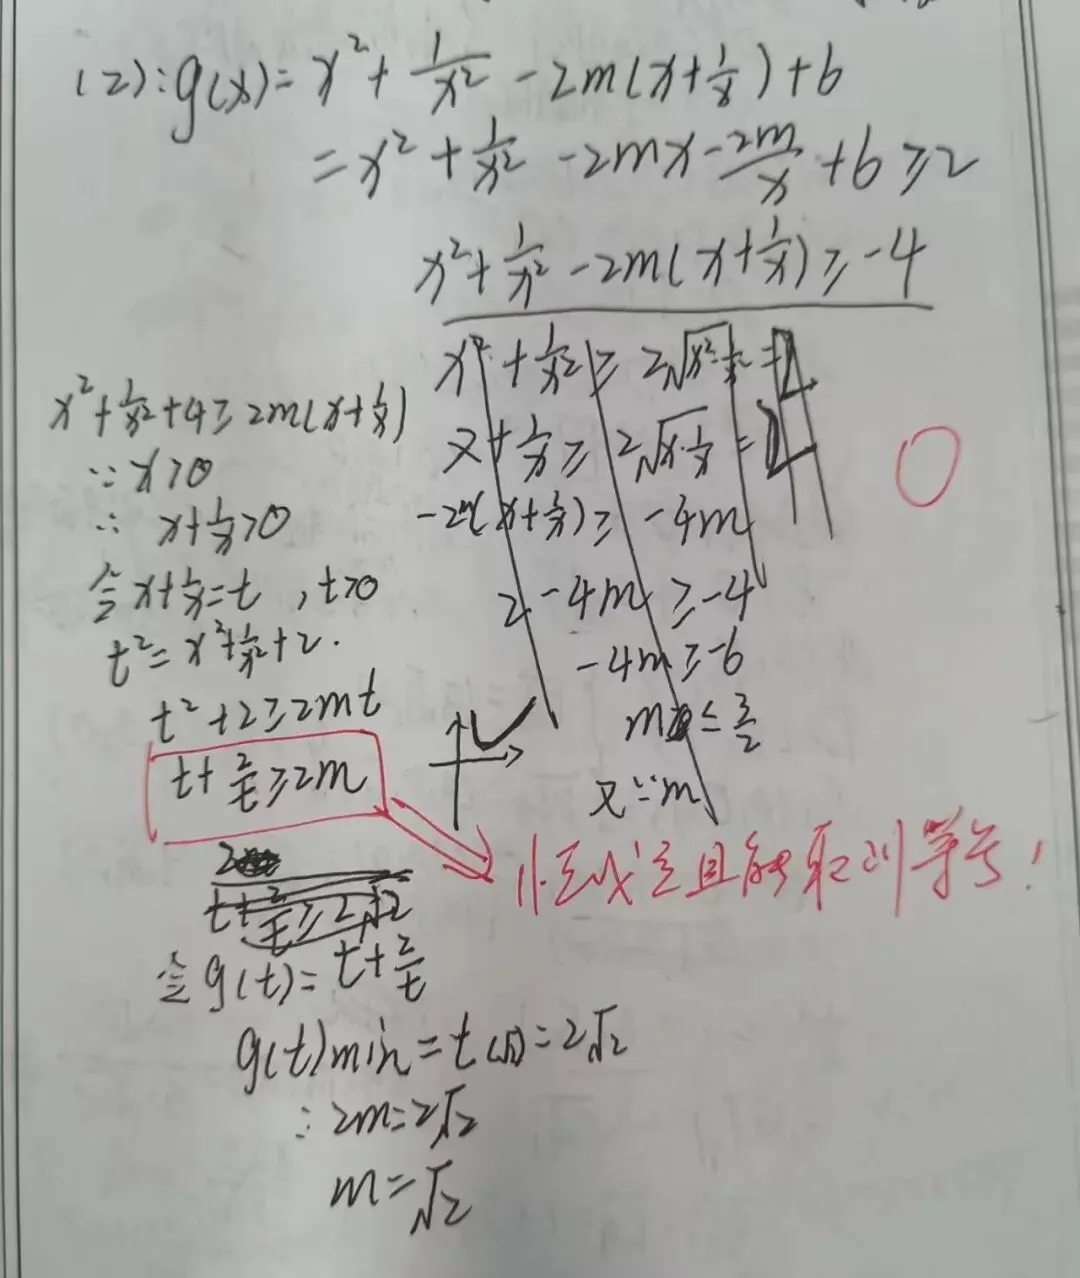 (2):g(x)=x²+1/x²-2m(x+1/x)+6
=x²+1/x²-2mx-2m/x+6≥2
x²+1/x²-2m(x+1/x)≥-4
x²+1/x²≥2√x²·1/x²=
x+1/x≥2√x·1/x=
-2m(x+1/x)≥-4m
2-4m≥-4
-4m≥-6
m≤3/2
又∵m
x²+1/x²+4≥2m(x+1/x)
∵x>0
∴x+1/x>0
令x+1/x=t,t>0
t²=x²+1/x²+2.
t²+2≥2mt
t+2/t≥2m
恒成立且能取到等号!
t+2/t≥2√2
令g(t)=t+2/t
g(t)min=t(√2)=2√2
∴2m=2√2
m=√2
0